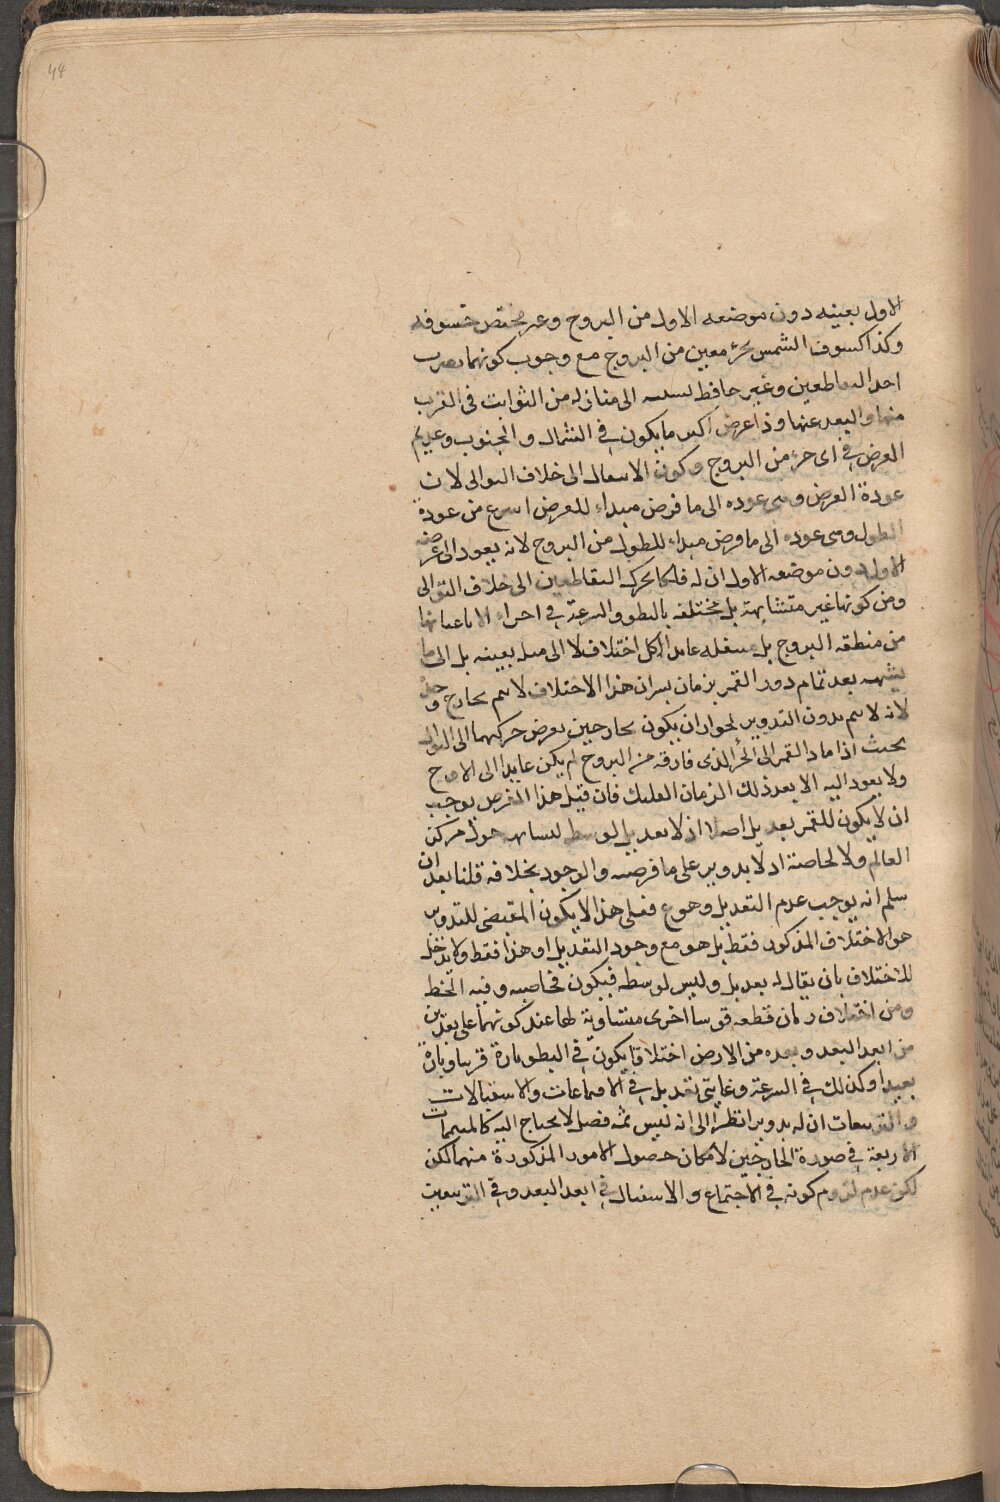 48
الاول بعينه دون موضعه الاول من البروج وغير مختص خسوفه
وكذا كسوف الشمس بجزء معين من البروج مع وجوب كونهما بقرب
احد التقاطعين وغير حافظ لنسبته الى منازله من الثوابت فى القرب
منها والبعد عنها وذا عرض اكثر ما يكون فى الشمال والجنوب وعديم
العرض فى اى جزء من البروج وكون الانتقال الى خلاف التوالى لان
عودة العرض وهى عوده الى ما فرض مبداء للعرض اسرع من عودة
الطول وهى عوده الى ما فرض مبداء للطول من البروج لانه يعود الى عرضه
الاول دون موضعه الاول ان له فلكا يحرك التقاطعين الى خلاف التوالى
ومن كونها غير متشابهة بل مختلفة بالبطو والسرعة فى اجزاء لا باعيانها
من منطقه البروج بل منتقله عايدا كل اختلاف لا الى مثله بعينه بل الى ما
يشبهه بعد تمام دور القمر بزمان يسير ان هذا الاختلاف لا يتم بخارج وحده
لانه لا يتم بدون التدوير لجواز ان يكون بخارجين يفرض حركتهما الى التوالى
بحيث اذا عاد القمر الى الجزء الذى فارقه من البروج لم يكن عايدا الى الاوج
ولا يعود اليه الا بعد ذلك الزمان القليل فان قيل هذا الفرض يوجب
ان لا يكون للقمر تعديل اصلا اذ لا تعديل لوسط لتشابهه حول مركز
العالم ولا لخاصته اذ لا تدوير على ما فرضته والوجود بخلافه قلنا بعد ان
سلم انه يوجب عدم التعديل وهو ع فعلى هذا لا يكون المقتضى للتدوير
هو الاختلاف المذكور فقط بل هو مع وجود التعديل او هذا فقط ولا يدخل
للاختلاف بان يقال له تعديل وليس لوسطه فيكون لخاصته وفيه الخبط
ومن اختلاف زمان قطعه قوسا اخرى متساوية لها عند كونهما على بعدين
من ابعد البعد وبعده من الارض اختلافا يكون فى البطو تارة قريبا وتارة
بعيدا وكذلك فى السرعة وغايتى تعديل فى الاجتماعات والاستقبالات
والتربيعات ان له تدويرا نظرا الى انه ليس ثمه فضل لا يحتاج اليه كالمتممات
الاربعة فى صورة الخارجين لامكان حصول الامور المذكورة منهما لكن
لكن عدم لزوم كونه فى الاجتماع والاستقبال فى ابعد البعد وفى التربيعين